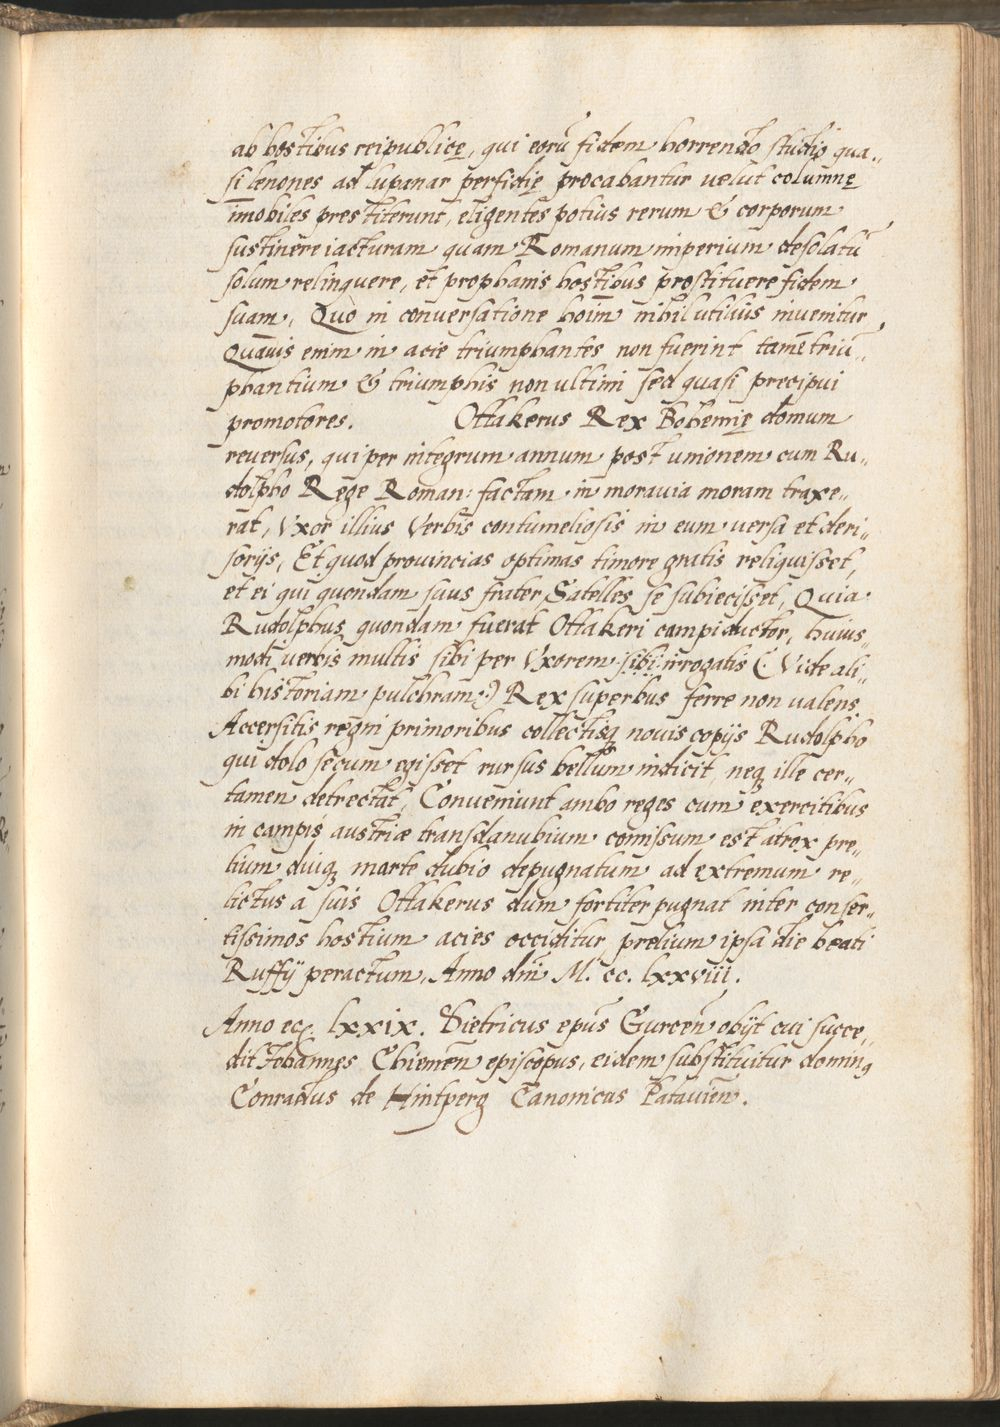 ab hostibus reipublicę, qui eorū fidem horrendo studio qua„
si lenones ad lupanar perfidię procabantur velut columnę
īmobiles prestiterunt, eligentes potius rerum & corporum
sustinere iacturam quam Romanum imperium desolatū
solum relinquere, et prophanis hostibus prostituere fidem
suam, Quo in conversatione hoīm nihil utilius invenitur,
Quāuis enim in acie triumphantes non fuerint tamē triū„
phantium & triumphis non ultimi sed quasi precipui
promotores. Ottakerus Rex Bohemię domum
reversus, qui per integrum annum post unionem cum Ru„
dolpho Rege Roman: factam in moravia moram traxe„
rat, Vxor illius Verbis contumeliosis in eum versa et deri„
sorijs, Et quod provincias optimas timore gratis reliquisset,
et ei qui quondam suus frater Satelles se subiecisset, Quia
Rudolphus quondam fuerat Ottakeri campiductor, huius„
modi verbis multis sibi per Vxorem sibi irrogatis (: Vide ali„
bi historiam pulchram:) Rex superbus ferre non valens
Accersitis regni primoribus collectisq; novis copijs Rudolpho
qui dolo secum egisset rursus bellum indicit, neq; ille cer„
tamen detrectat, Conveniunt ambo reges cum exercitibus
in campis austriæ transdanubium comissum est atrox pre„
lium duiq; marte dubio depugnatum ad extremum re„
lictus a suis Ottakerus dum fortiter pugnat inter confer„
tissimos hostium acies occiditur, prelium ipsa die beati
Ruffij peractum, Anno dnī M. cc. lxxviii.
Anno ec. lxxix. Dietricus epūs Gurceñ obijt cui succe„
dit Johannes Chiemeñ episcopus, eidem substituitur dominq
Conradus de Hintperg Canonicus Patavieñ.